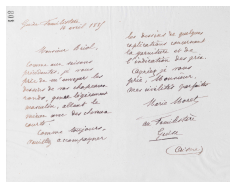 Guise Familistère
10 avril 189
Monsieur Bréol.
Comme aux saisons
précédentes, je vous
prie de m'envoyer les
dessins de vos chapeaux
ronds, genre légèrement
allant de
avec des cheveux
courts
Comme toujours,
veuillez accompagner
les dessins de quelques
explications concernant
la garniture et de
l'indication des prix.
Agréez, je vous
prie, Monsieur,
mes civilités parfaites
Marie Moret
au Familistère
Guise
(Aisne)